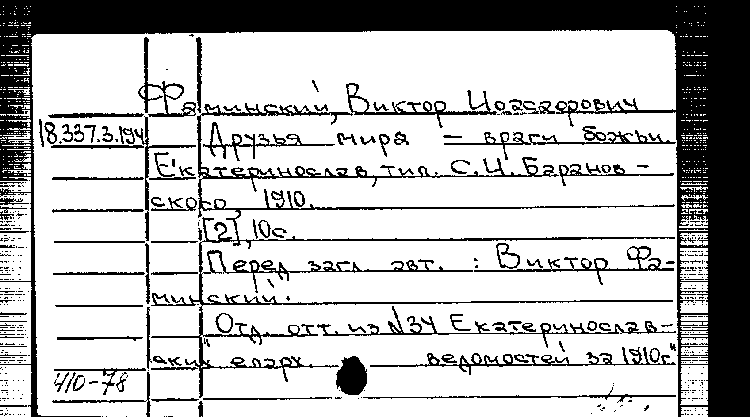 Фаминский, Виктор Иоасафович
18.337.3.194 Друзья мира – враги божьи.
Екатеринослав, тип. С.И. Баранов-
ского, 1910.
[2], 10с.
Перед загл. авт. : Виктор Фа-
минский.
"Отд. отт. из №34 Екатеринослав-
ских епарх. ведомостей за 1910г."
410-78